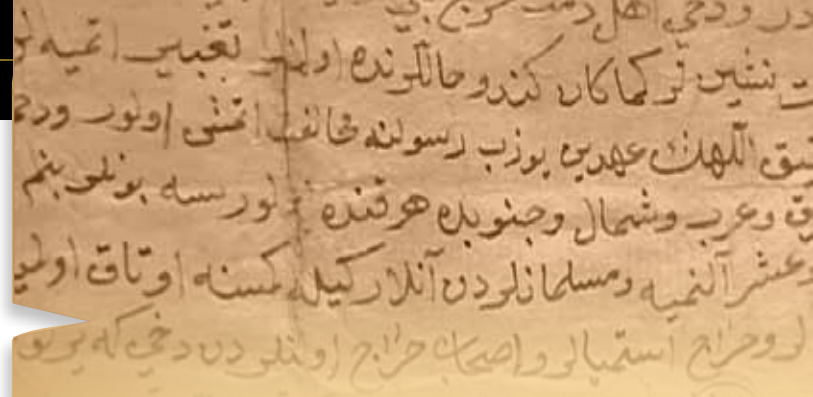 در و دخي اهل ذمت خراج
نشين لر كماكان كندو حاللرنده اولالر تغيير اتميه لر
اللهك عهدين بوزب رسولنه مخالفت اتمش اولور ودخي
وغرب وشمال وجنوبده هر قنده اولورسه بونلر بنم
وعشر آلنميه ومسلمانلردن آنلاركيله كمسنه اورتاق اولميه
لر وخراج استميالر واصحاب خراج اونلردن دخي كه